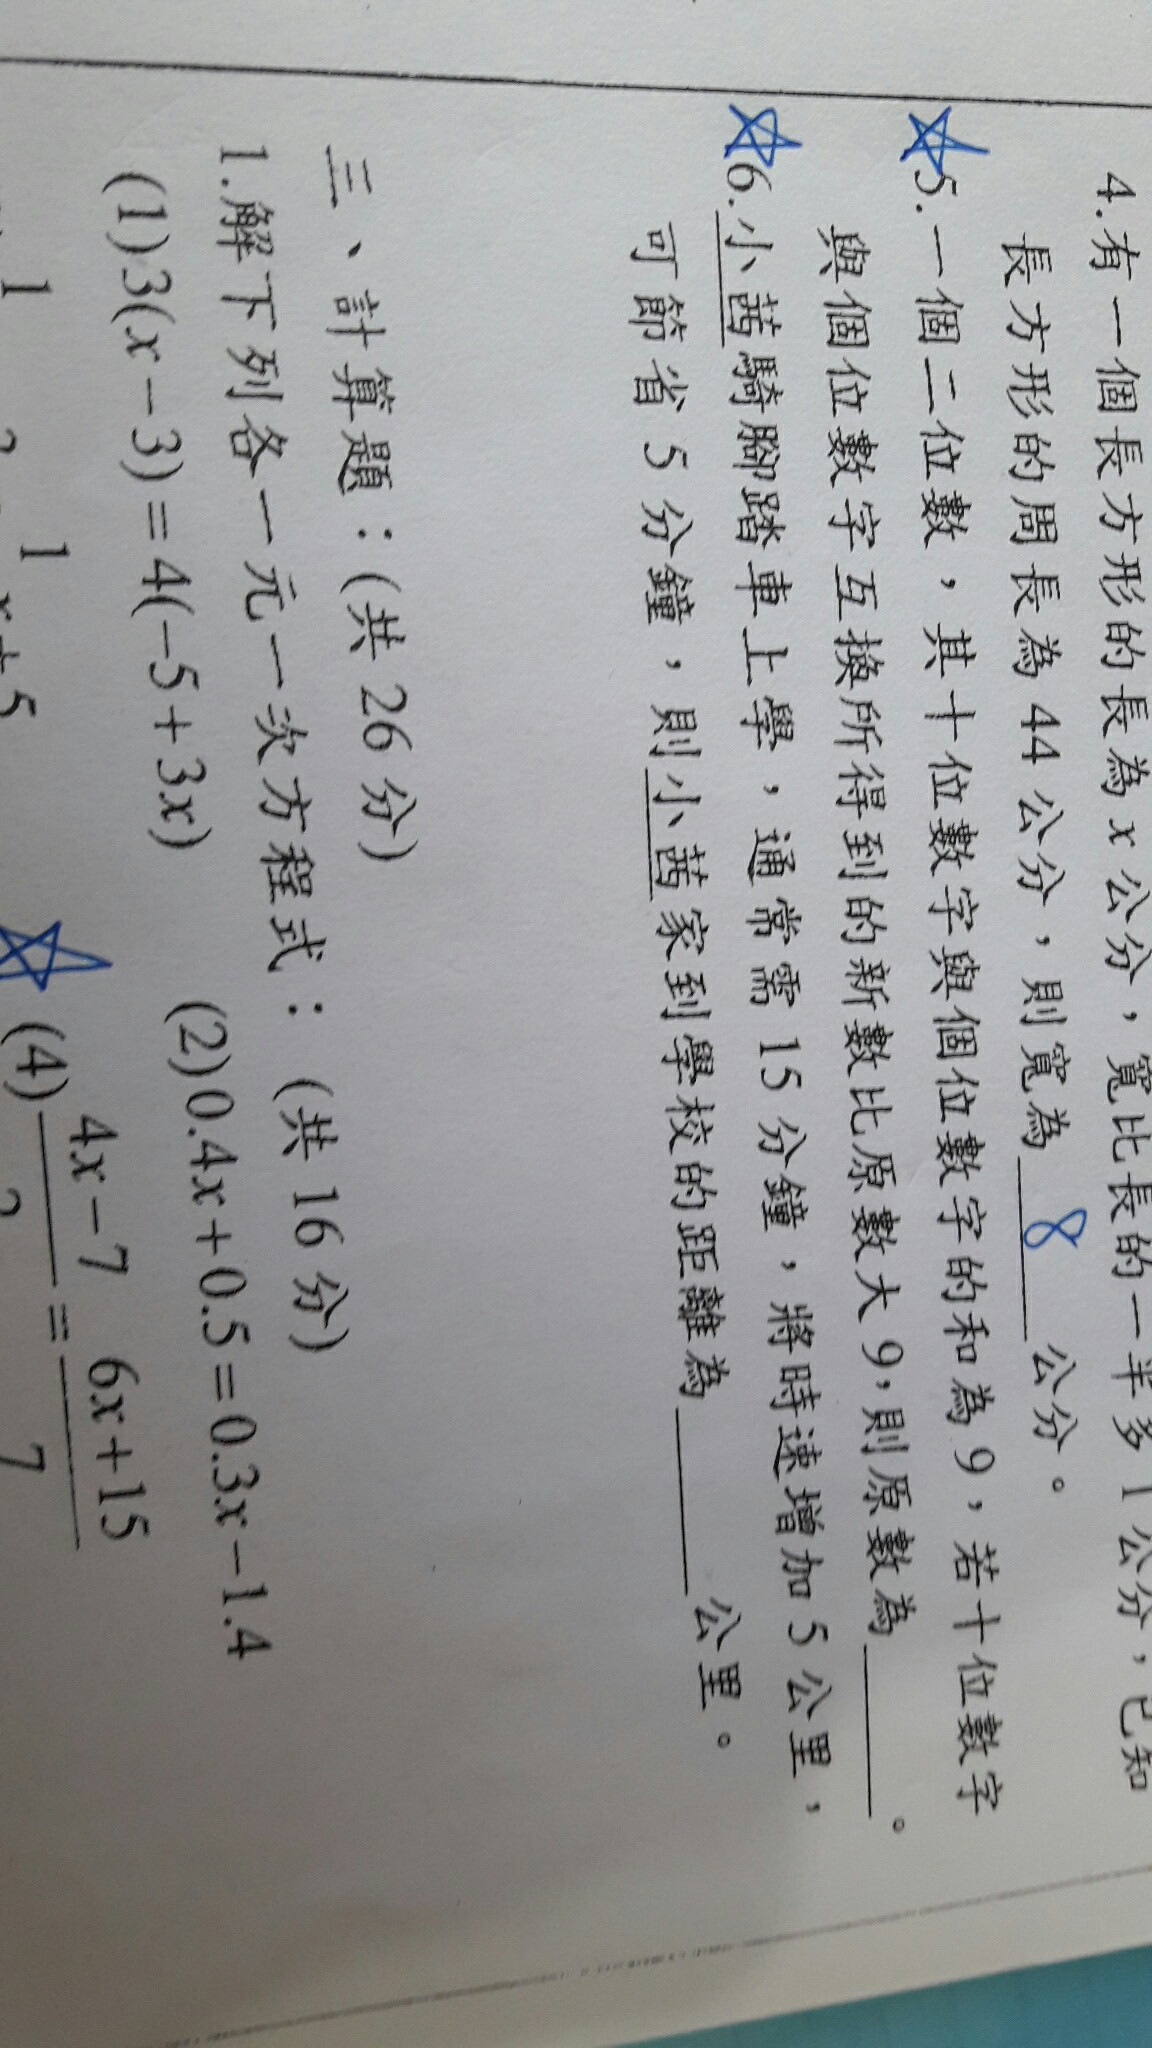 4.有一個長方形的長為 x 公分，寬比長的一半多 1 公分，已知
長方形的周長為 44 公分，則寬為 8 公分。
5.一個二位數，其十位數字與個位數字的和為 9，若十位數字
與個位數字互換所得到的新數比原數大 9，則原數為____。
6.小茜騎腳踏車上學，通常需 15 分鐘，將時速增加 5 公里，
可節省 5 分鐘，則小茜家到學校的距離為____公里。
三、計算題：(共 26 分)
1.解下列各一元一次方程式：(共 16 分)
(1)3(x－3)＝4(－5＋3x) (2)0.4x＋0.5＝0.3x－1.4
(4) 4x－7 ＝ 6x＋15
7